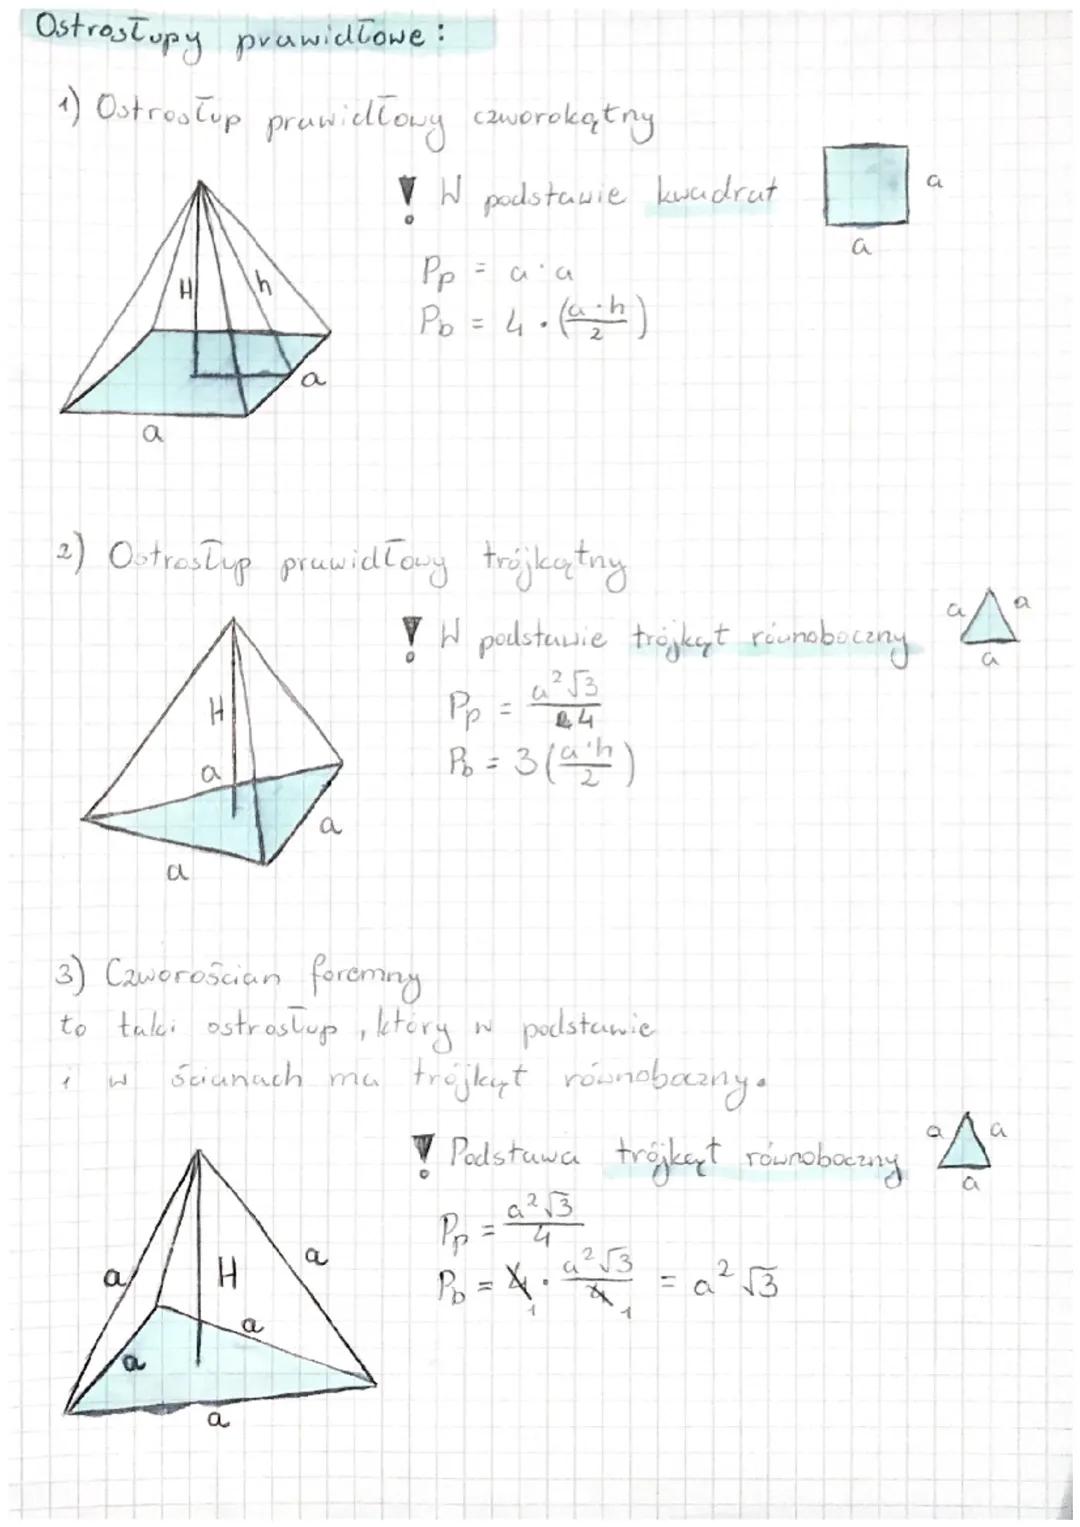 Ostrosłupy prawidłowe:
1) Ostrosłup prawidłowy czworokątny
! W podstawie kwadrat
a
a
Pp = a · a
Pb = 4 · (a·h/2)
H h
a
a
2) Ostrosłup prawidłowy trójkątny
! W podstawie trójkąt równoboczny
a a
a
Pp = a²√3/4
Pb = 3(a·h/2)
H
a
a
a
3) Czworościan foremny
to taki ostrosłup, który w podstawie
i w ścianach ma trójkąt równoboczny.
! Podstawa trójkąt równoboczny
a a
a
Pp = a²√3/4
Pb = 4 · a²√3/4 = a²√3
1 1
a H a
a
a
a